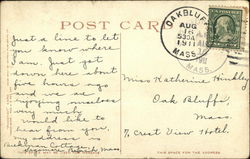 POST CARD
OAK BLUFFS
AUG
16
530A
1911
MASS.
Just a line to let
you know where
I am. Just got
down here about
five hours ago
and we are
enjoying ourselves
very much
would like to
hear from you,
my address
Cottage
Mass
Miss Katherine Hinkley
Oak Bluffs,
Mass.
% Crest View Hotel.
THIS SPACE FOR THE ADDRESS